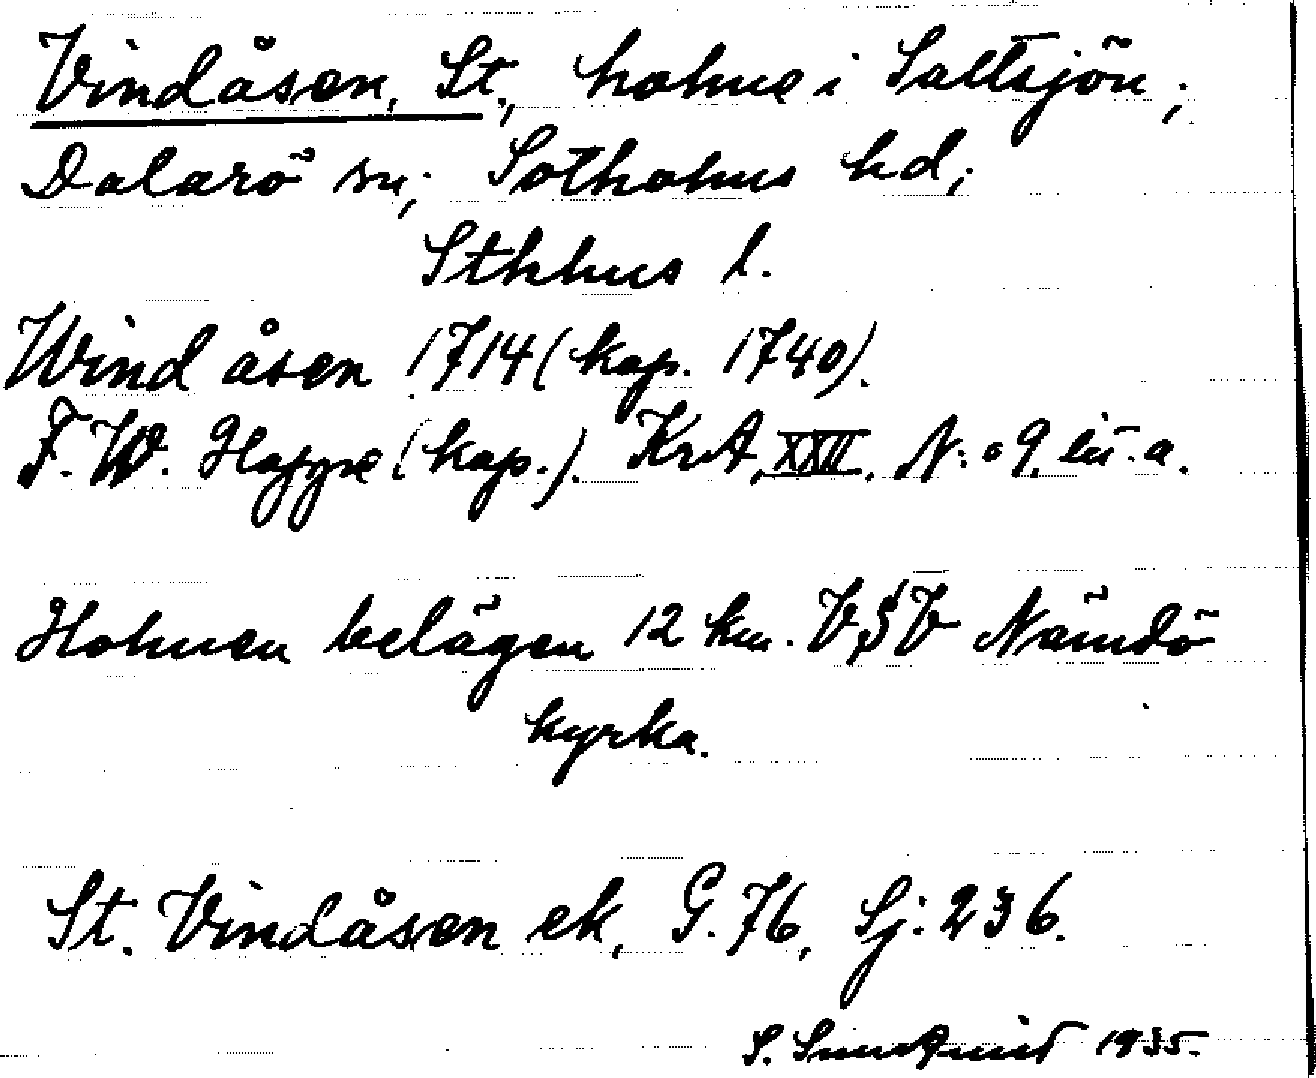 Vindåsen, St., holme i Saltsjön;
Dalarö sn; Sotholms hd;
Sthlms l.
Wind åsen 1714 (kap. 1740).
F. W. Hoppe (kap.). KrA, XXII. N:o 9. lit. a.
Holmen belägen 12 km. VSV Nämdö
kyrka.
St. Vindåsen ek, G. 76, Sj: 236.
S. 1935.